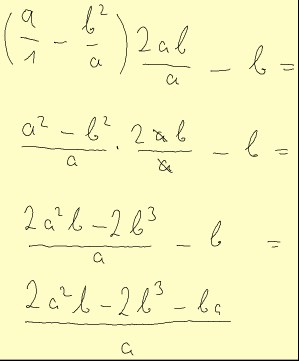 (a/1 - b²/a) 2ab/a - b =
(a² - b²)/a · 2ab/a - b =
(2a²b - 2b³)/a - b =
(2a²b - 2b³ - ba)/a